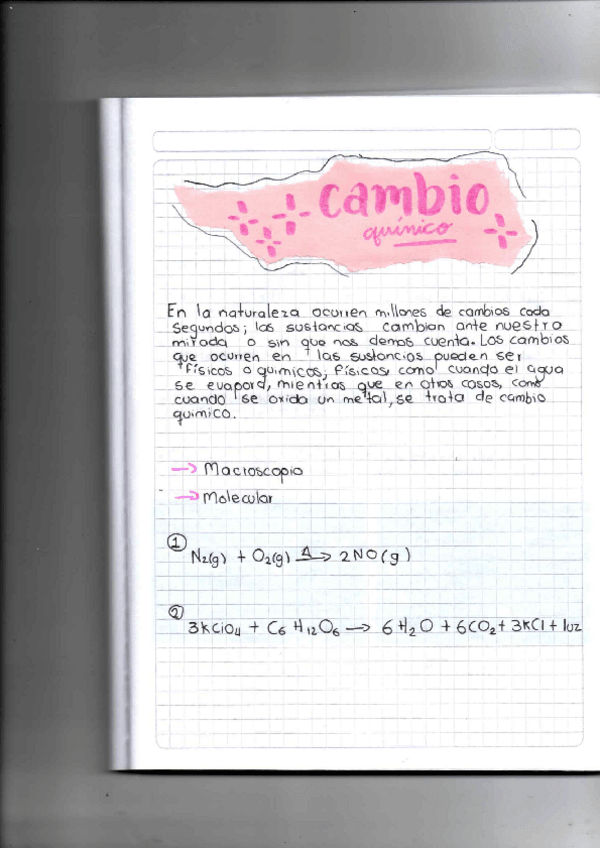 cambio
químico
En la naturaleza ocurren millones de cambios cada
segundos; las sustancias cambian ante nuestro
mirada o sin que nos demos cuenta. Los cambios
que ocurren en las sustancias pueden ser
físicos o quimicos; físicos, como cuando el agua
se evapora, mientras que en otros casos, como
cuando se oxida un metal, se trata de cambio
quimico.
→ Macroscopio
→ Molecular
①
N₂(g) + O₂(g) Δ→ 2NO(g)
②
3KClO₄ + C₆H₁₂O₆ → 6H₂O + 6CO₂ + 3KCl + luz